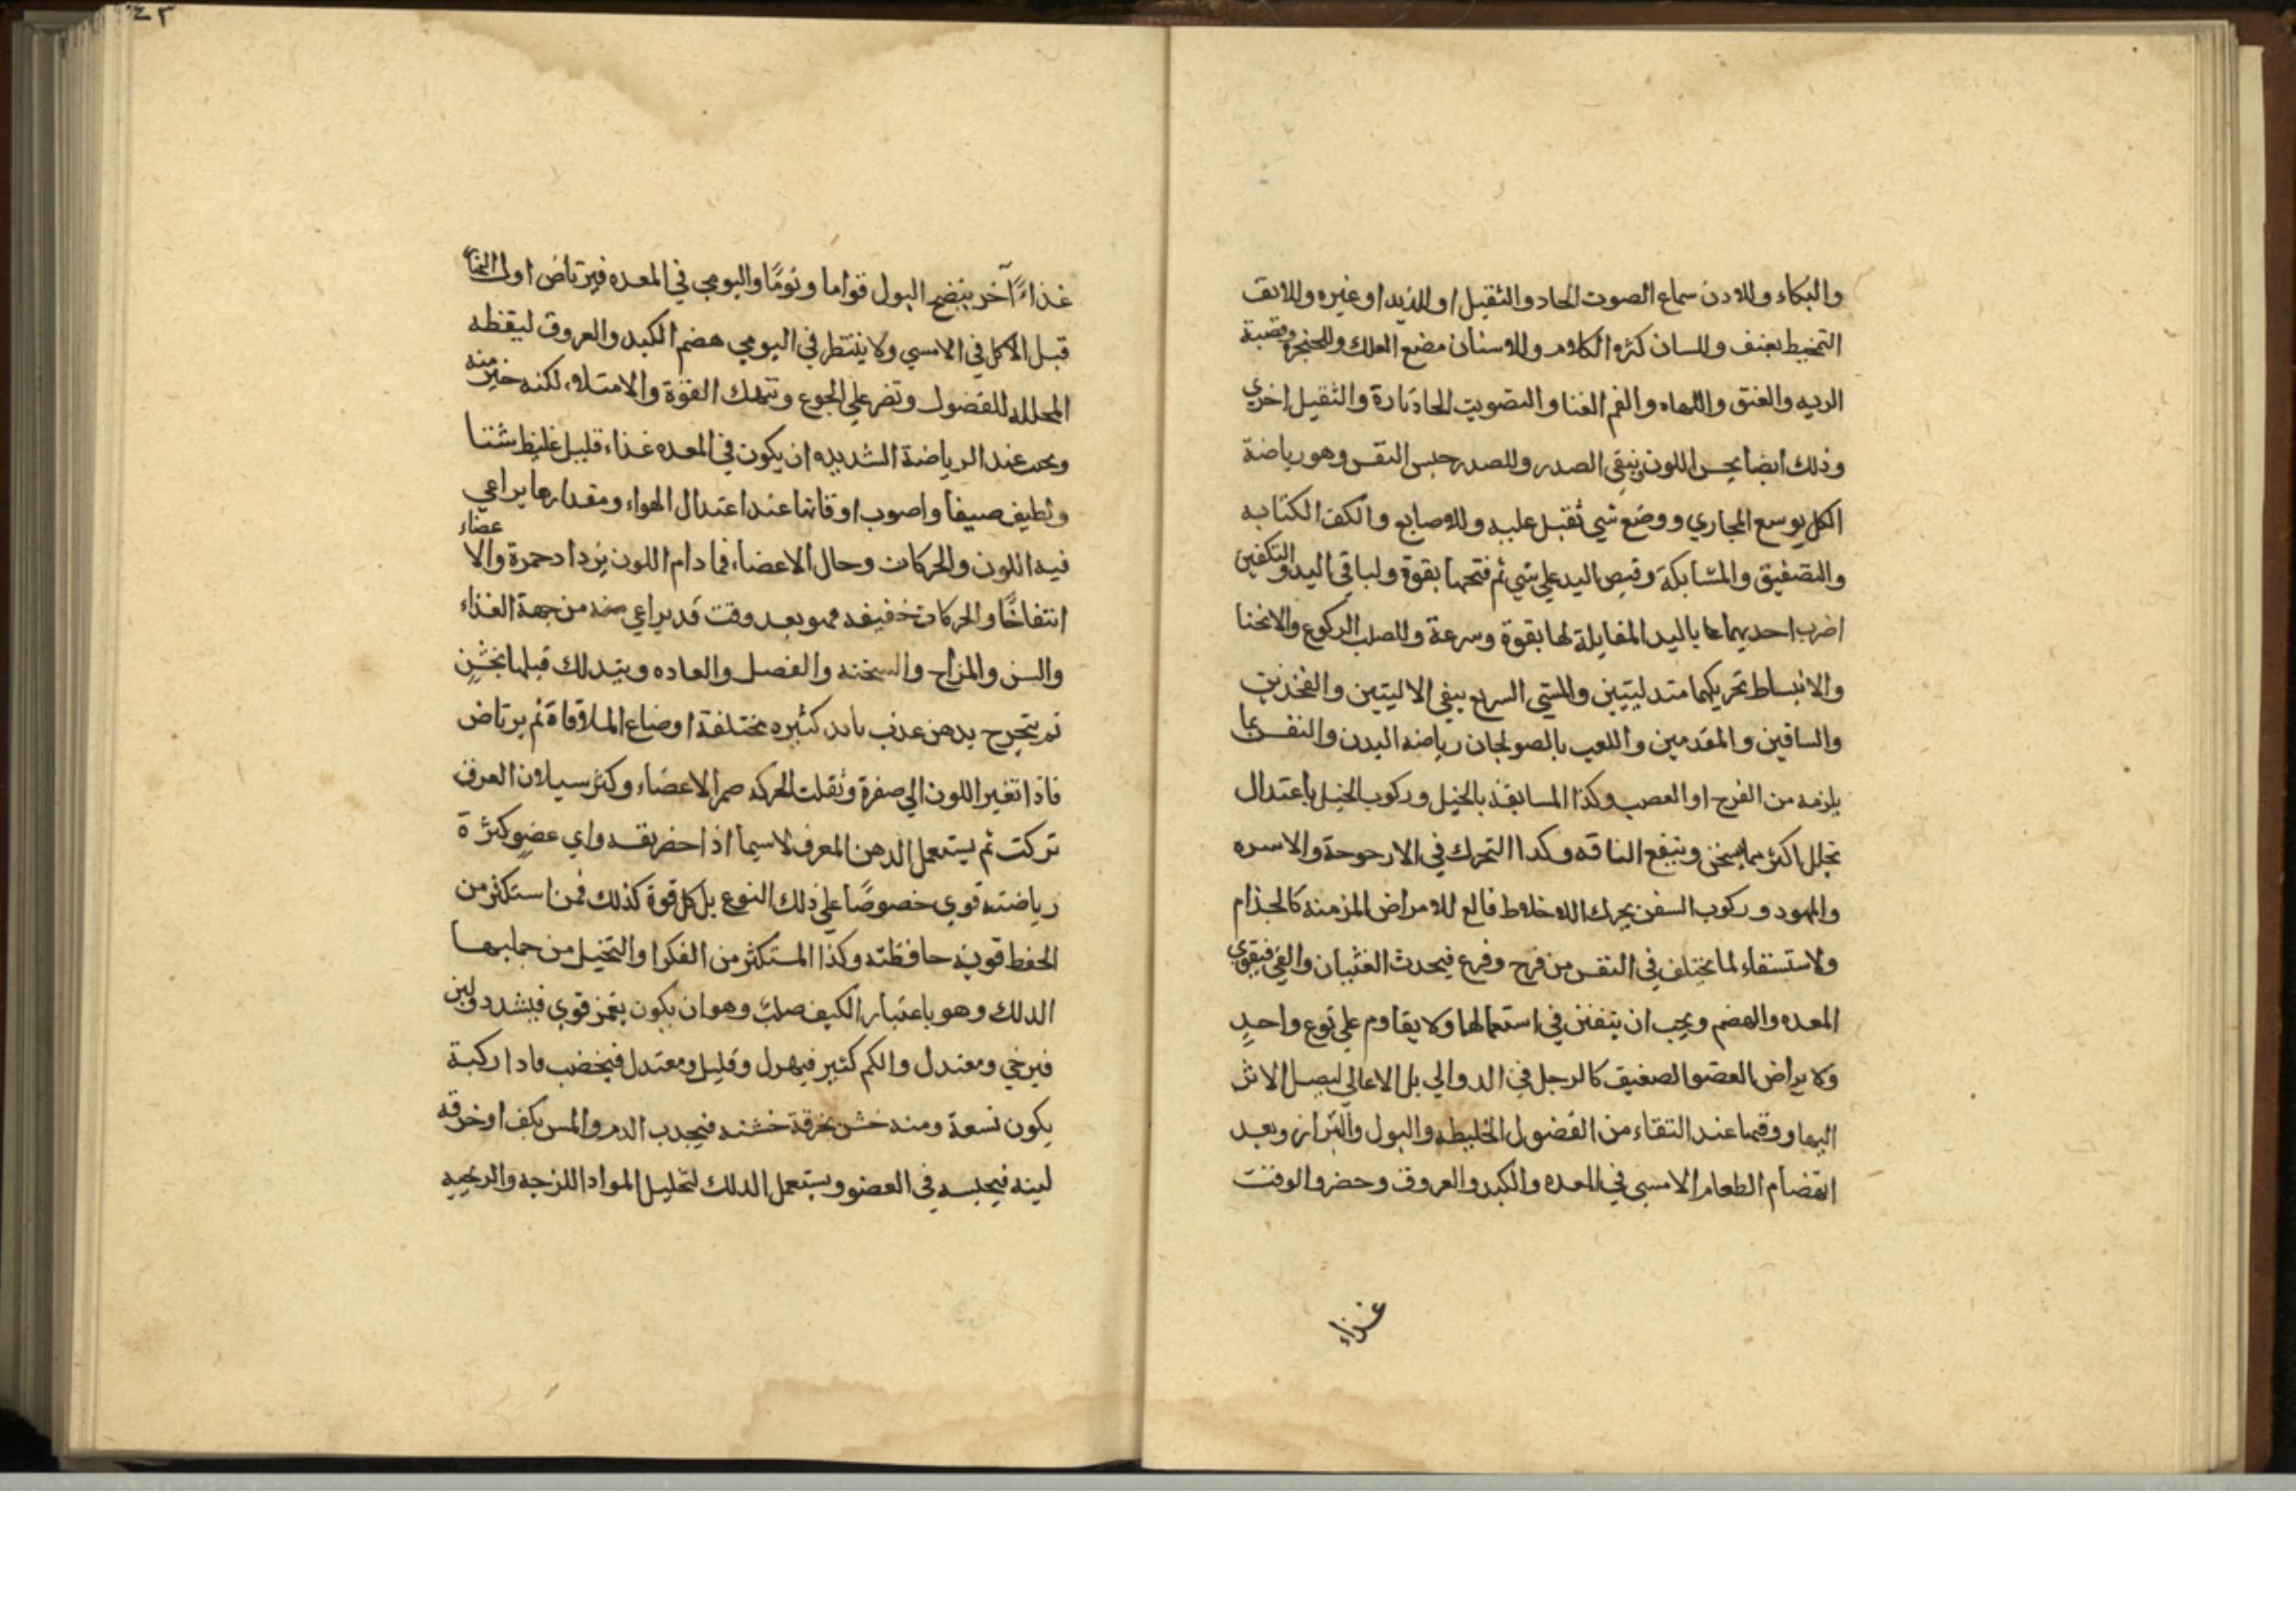 والبكاء وللاذن سماع الصوت الحاد والثقيل او اللذيذ او غيره وللانف
التمخيط بعنف وللسان كثره الكلام وللاسنان مضغ العلك وللحنجرة وقصبة
الريه والعنق واللهاه والفم الغنا والتصويت الحاد تارة والثقيل اخري
وذلك ايضا يحسن اللون وينقي الصدر وللصدر حبس النفس وهو رياضة
الكل يوسع المجاري ووضع شي ثقيل عليه وللاصابع والكف الكتابه
والتصفيق والمشابكة وقبض اليد علي شي ثم فتحها بقوة ولباقي اليد والتكفين
اضرب احديهما باليد المقابلة لها بقوة وسرعة وللصلب الركوع والانحنا
والانبساط تحريكهما متدليتين وللمشي السريع ينفي الاليتين والفخذين
والساقين والمقدمين واللعب بالصولجان رياضه البدن والنفس بما
يلزمه من الفرح او الغصب وكذا المسابقة بالخيل وركوب الخيل باعتدال
تحلل اكثر مما يسخن وينفع الناقه وكدا التحرك في الارحوحة والاسره
والمهود وركوب السفن يحرك الاخلاط قالع للامراض المزمنه كالجذام
ولاستسقاء لما يختلف في النفس من فرح وفرع فيحدث الغثيان والقي فيقوي
المعده والهضم ويجب ان يتفنن في استعمالها ولا يقاوم علي نوع واحدٍ
ولا يراض العضو الضعيف كالرجل في الدوالي بل الاعالي ليصل الاثر
اليها ووقتها عند النقاء من الفضول الخليطه والبول والبراز وبعد
انهضام الطعام الامسي في المعده والكبد والعروق وحضر والوقت
غذاء
٤٢
غذاءً آخر ينضج البول قواما ونومًا واليومي في المعده فيرتاض اول النهار
قبل الاكل في الامسي ولا ينتظر في اليومي هضم الكبد والعروق ليقظه
المحلله للفضول وتضر علي الجوع وتنهك القوة والامتلاء لكنه خير منه
ويجب عند الرياضة الشديده ان يكون في المعده غذاء قليل غليظ شتا
ولطيف صيفا واصوب اوقاتها عند اعتدال الهواء ومقدارها يراعي
فيه اللون والحركات وحال الاعضاء فما دام اللون يزداد حمرة والاعضاء
انتفاخًا والحركات خفيفه فهو بعد وقت قد يراعي منه من جهة الغذاء
والسن والمزاج والسخنه والفصل والعاده ويتدلك قبلها بخشن
ثم يتجرح بدهن عذب بايد كثيره مختلفة اوضاع الملاقاة ثم يرتاض
فاذا تغير اللون الي صفرة وثقلت الحركه صمر الاعضاء وكثر سيلان العرق
تركت ثم يستعمل الدهن المعرف لاسيما اذا حضر نفسه واي عضو كثرة
رياضته قوي خصوصًا علي ذلك النوع بل كل قوة كذلك فمن استكثر من
الحفظ قوية حافظته وكذا المستكثر من الفكر او التخيل من جلبها
الدلك وهو باعتبار الكيف صلب وهو ان يكون بغمز قوي فيشدد ولين
فيرخي ومعتدل والكم كثير فيهزل وقليل ومعتدل فيخضب فاذا ركبة
يكون تسعة ومنه خشن بخرقة خشنه فيجدب الدم واملس بكف او خرقه
لينه فيحبسه في العضو ويستعمل الدلك لتحليل المواد اللزجه والريحيه